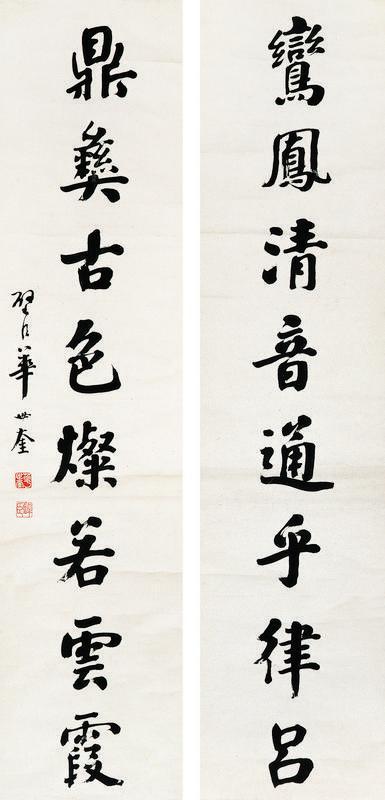 鸞鳳清音通乎律呂
鼎彝古色燦若雲霞
璧臣華世奎